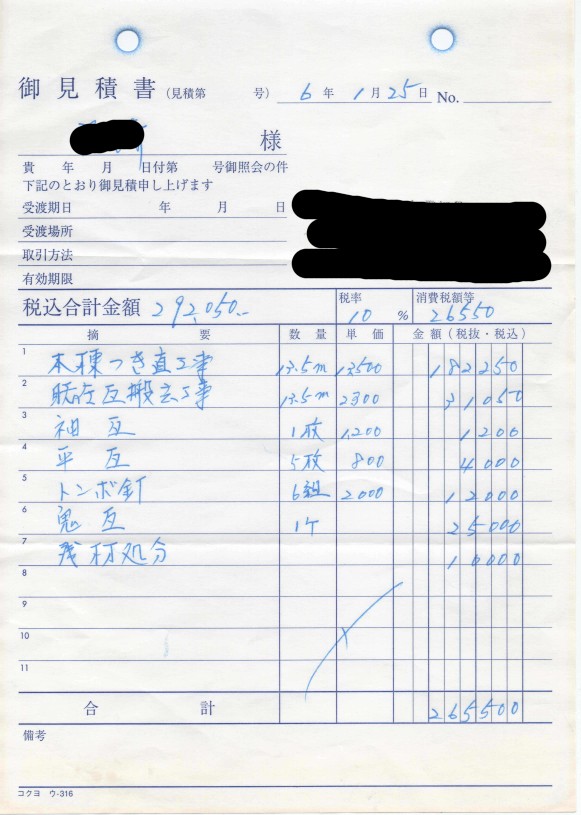 御見積書 (見積第 号) 6年 1月 25日 No.
様
貴 年 月 日付第 号御照会の件
下記のとおり御見積申し上げます
受渡期日 年 月 日
受渡場所
取引方法
有効期限
税込合計金額 292,050.- 税率 10 % 消費税額等 26550
摘 要 数量 単価 金額(税抜・税込)
1 本棟つき直工事 13.5m 13,500 182250
2 既存瓦搬去工事 13.5m 2300 31050
3 袖瓦 1枚 1,200 1200
4 平瓦 5枚 800 4000
5 トンボ釘 6組 2000 12000
6 鬼瓦 1ケ 25000
7 残材処分 10000
8
9
10
11
合 計 265500
備考
コクヨ ウ-316